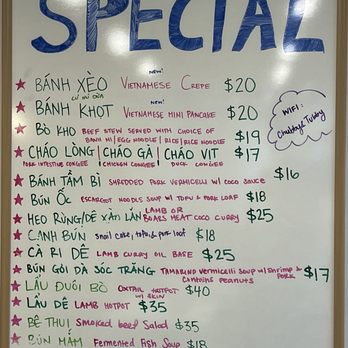 SPECIAL
new!
BÁNH XÈO VIETNAMESE CREPE $20
CỦ HŨ DỪA
new!
BÁNH KHOT VIETNAMESE MINI PANCAKE $20
BÒ KHO BEEF STEW SERVED WITH CHOICE OF $19
BANH MI / EGG NOODLE / RICE / RICE NOODLE
CHÁO LÒNG | CHÁO GÀ | CHÁO VIT $17
PORK INTESTINE CONGEE | CHICKEN CONGEE | DUCK CONGEE
BÁNH TẦM BÌ SHREDDED PORK VERMICELLI W/ COCO SAUCE $16
BÚN ỐC ESCARGOT NOODLE SOUP W/ TOFU & PORK LOAF $18
HEO RỪNG/DÊ XÀO LĂN LAMB OR BOARS MEAT COCO CURRY $25
CANH BÚN snail cake, tofu & pork loaf $18
CÀ RI DÊ LAMB CURRY OIL BASE $25
BÚN GỎI DÀ SÓC TRĂNG TAMARIND vermicelli soup w/ shrimp & PORK $17
CONTAINS PEANUTS
LẨU ĐUÔI BÒ OXTAIL HOTPOT $40
LẨU DÊ LAMB HOTPOT W/ SKIN $35
BÊ THUI Smoked beef Salad $35
BÚN MAM Fermented Fish Soup $18
WIFI: